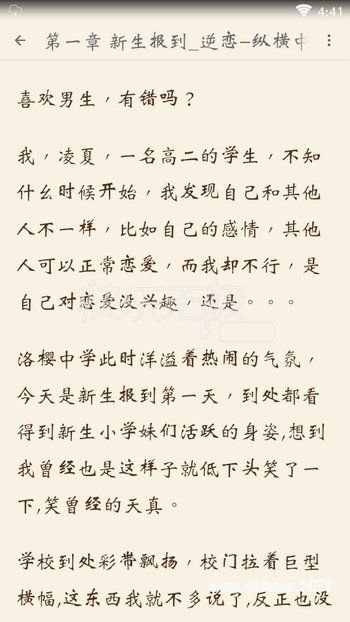 4:41
第一章 新生报到_逆恋-纵横中
喜欢男生，有错吗？
我，凌夏，一名高二的学生，不知
什么时候开始，我发现自己和其他
人不一样，比如自己的感情，其他
人可以正常恋爱，而我却不行，是
自己对恋爱没兴趣，还是。。。
洛樱中学此时洋溢着热闹的气氛，
今天是新生报到第一天，到处都看
得到新生小学妹们活跃的身姿,想到
我曾经也是这样子就低下头笑了一
下,笑曾经的天真。
学校到处彩带飘扬，校门拉着巨型
横幅,这东西我就不多说了,反正也没